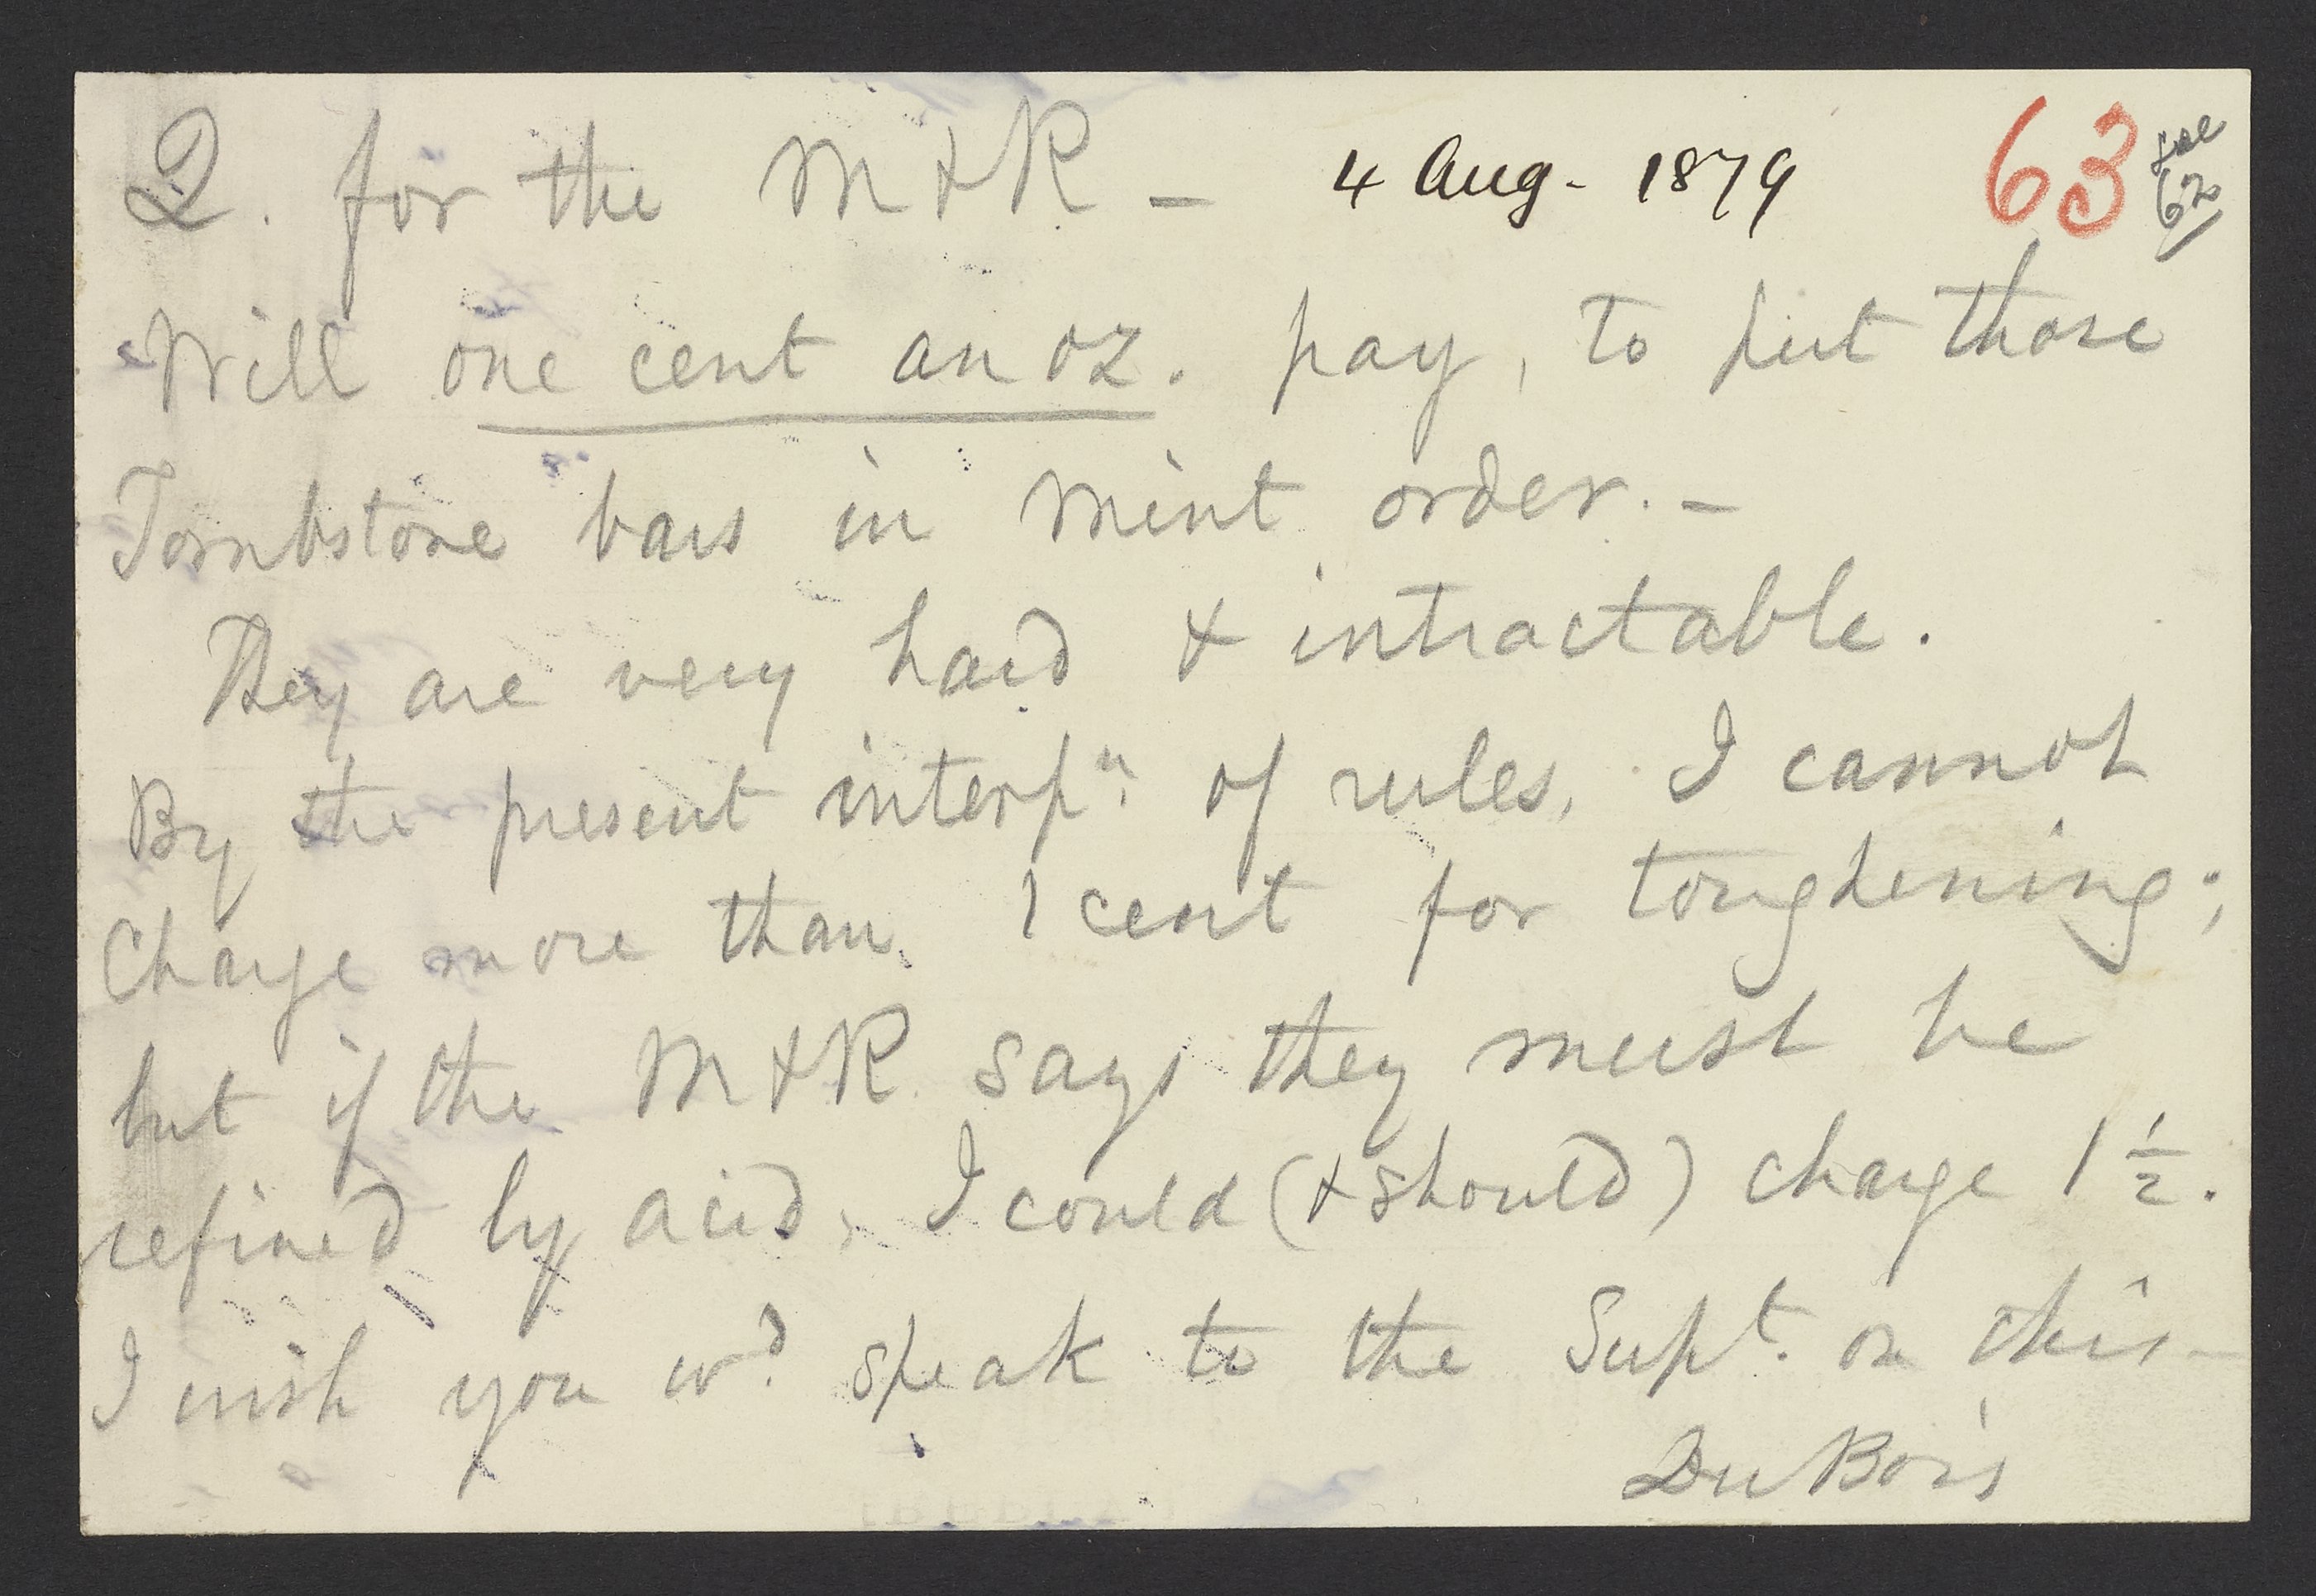 Q. for the M & R — 4 Aug - 1879 63 see 62
Will one cent an oz. pay, to put those
Tombstone bars in mint order. —
They are very hard & intractable.
By the present interpⁿ. of rules, I cannot
Charge more than 1 cent for toughening;
but if the M & R says they must be
refined by acid, I could (& should) charge 1 ½.
I wish you wᵈ. speak to the Supᵗ. on this —
Du Bois